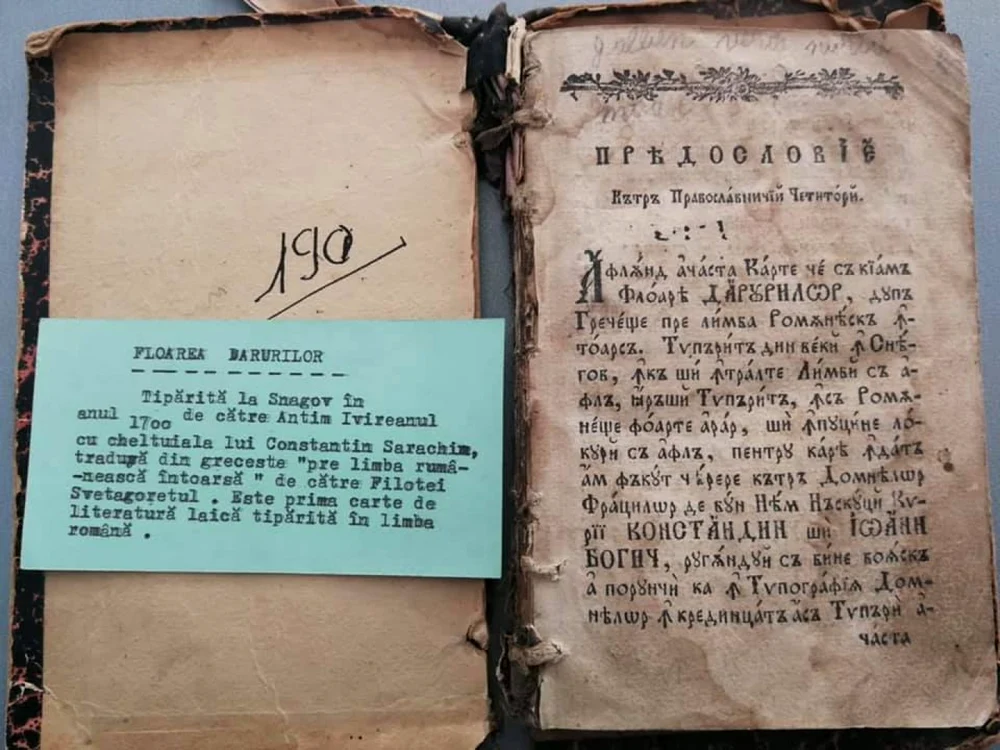 190
FLOAREA DARURILOR
Tipărită la Snagov în
anul 1700 de către Antim Ivireanul
cu cheltuiala lui Constantin Sarachim,
tradusă din greceste "pre limba rumâ-
-nească întoarsă " de către Filotei
Svetagoretul . Este prima carte de
literatură laică tipărită în limba
română .
ПРѢДОСЛОВІЕ
Кътръ Православничїй Четито́рй.
Афлѫнд ача́ста Ка́рте че́ съ кїамъ
Флоарѣ ДАРꙋРИЛѠР, дꙋпъ
Гречѣще пре лимба Ромѫнѣскъ ꙟ-
тоарсъ. Тѵпъритъ дин векй ꙟ Снѣ-
гов, ꙟкъ ши ꙟтралте Лимбй съ а-
флъ, ꙗръши Тѵпъритъ, ꙟсъ Ромѫ-
нѣще фоарте арар, ши ꙟпꙋцине ло-
кꙋри съ афлъ, пентрꙋ карѣ ꙟдатъ
ам фъкꙋт черере кътръ Домнѣлѡр
Фрацилѡр де бꙋн Нѣм Нъскꙋцй Кѵ-
рїй КОНСТАНДИН ши ІѠАНН
БОГИЧ, рꙋгѫндꙋй съ бине воѧскъ
а порꙋнчи ка ꙟ Тѵпографїа Дом-
нѣлѡр ꙟкрединцатъ асъ Тѵпъри а-
часта